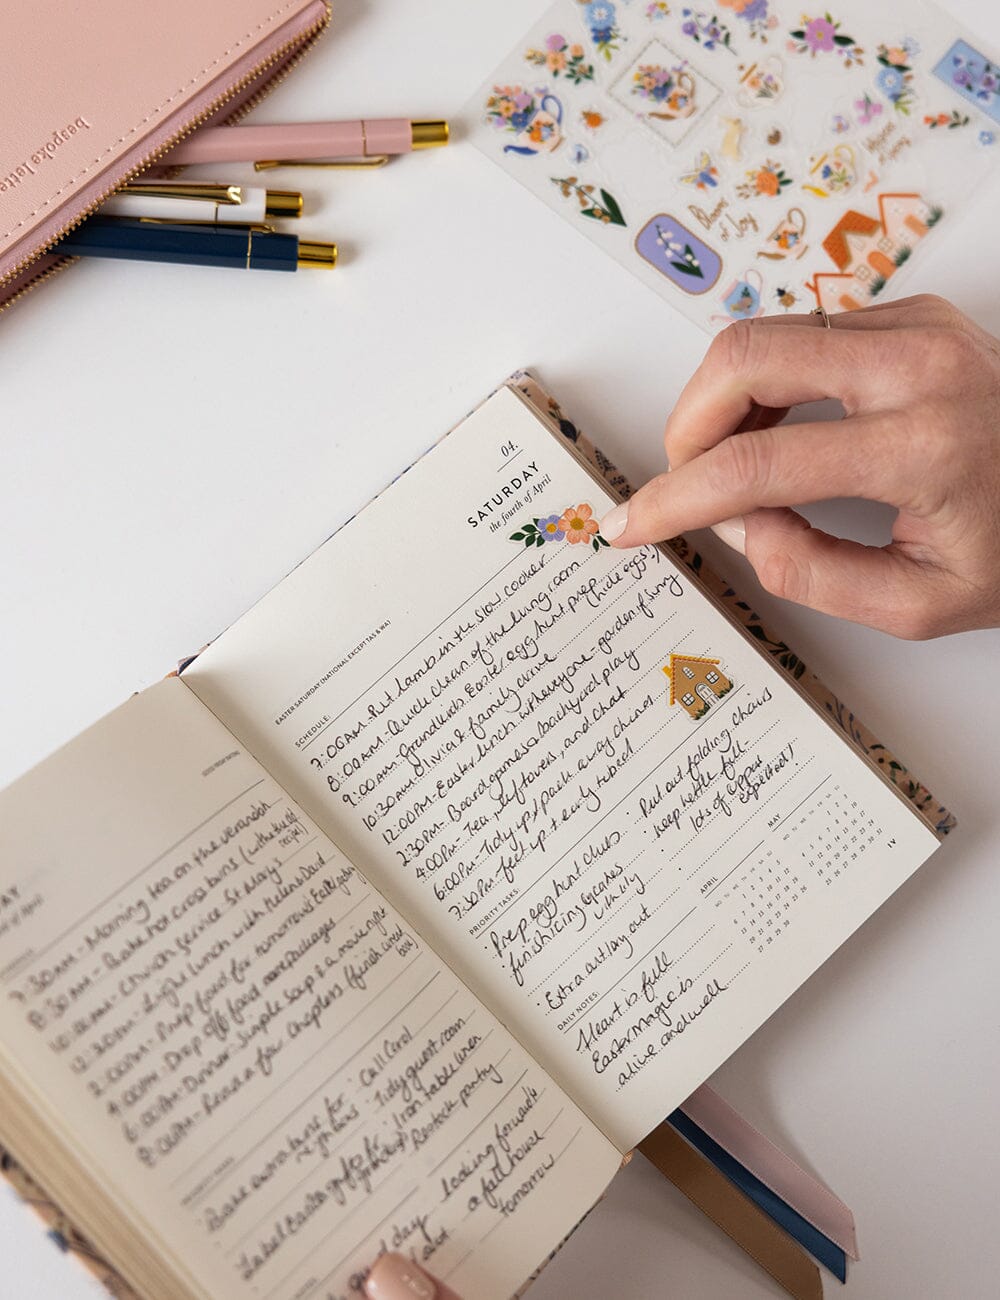 bespoke lette
Bloom
of Joy
04.
SATURDAY
the fourth of April
EASTER SATURDAY (NATIONAL EXCEPT TAS & WA)
SCHEDULE:
7:00AM - Put lamb in the slow cooker
8:00AM - Quick clean of the living room
9:00AM - Grandkids Easter egg hunt prep (hide eggs!)
10:30AM - Olivia & family arrive
12:00PM - Easter lunch with everyone - garden if sunny
2:30PM - Board games & backyard play
4:00PM - Tea, leftovers, and chat
6:00PM - Tidy up & pack away chairs
7:30PM - feet up & early to bed!
PRIORITY TASKS:
Prep egg hunt clues
finish icing cupcakes
w/ Lily
Extra art lay out
Put out folding chairs
keep kettle full -
lots of cuppas
expected!
DAILY NOTES:
Heart is full
Easter magic is
alive and well
APRIL
MAY
IV
GOOD FRIDAY (NATIONAL)
AY
of April
7:30AM - Morning tea on the verandah
8:30AM - Bake hot cross buns (with the old
recipe!)
10:00AM - Church service St Mary's
12:30PM - Light lunch with Helen & David
2:00PM - Prep food for tomorrow's
4:00PM - Drop off food packages
6:00PM - Dinner - simple soup & a movie
8:00PM - Read a few chapters (finish
book)
Bake extra buns for
Label Easter gifts for
Call Carol
Tidy guest room
Iron table linen
Restock pantry
day
looking forward
a full house
tomorrow